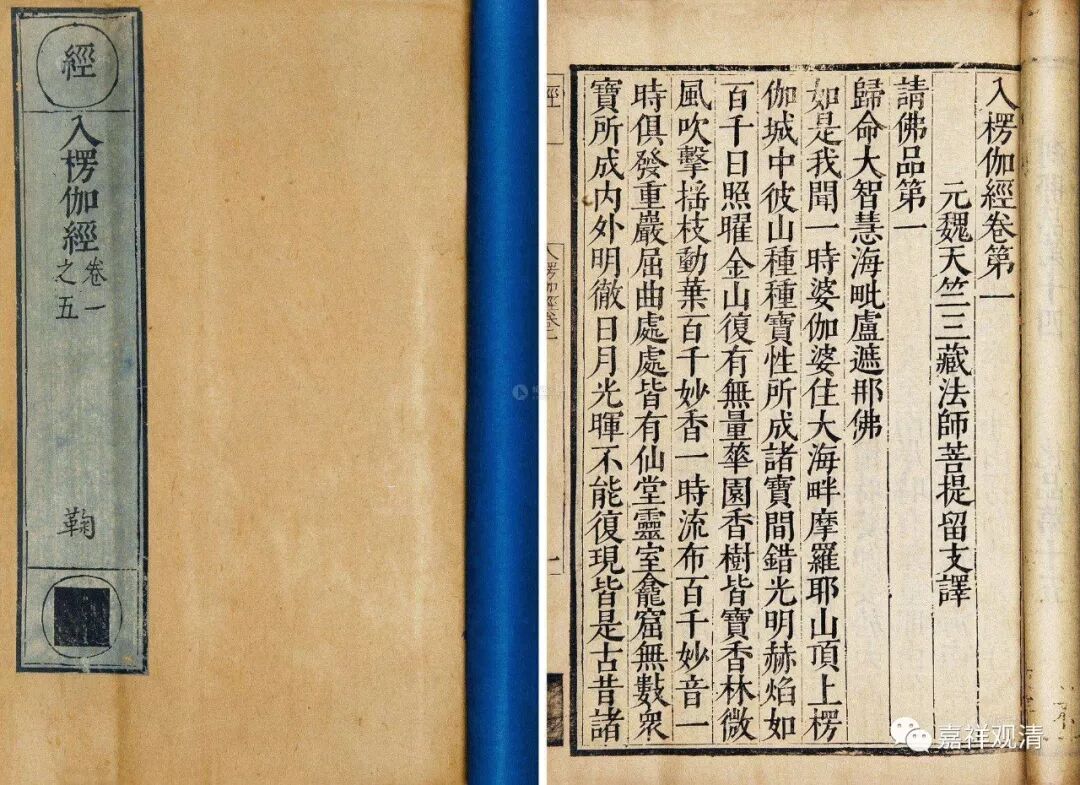 經
入楞伽經
卷一
之五
鞠
入楞伽經卷第一
元魏天竺三藏法師菩提留支譯
請佛品第一
歸命大智慧海毗盧遮那佛
如是我聞一時婆伽婆住大海畔摩羅耶山頂上楞
伽城中彼山種種寶性所成諸寶間錯光明赫焰如
百千日照曜金山復有無量華園香樹皆寶香林微
風吹擊摇枝動葉百千妙香一時流布百千妙音一
時俱發重巖屈曲處處皆有仙堂靈室龕窟無數衆
寶所成内外明徹日月光暉不能復現皆是古昔諸
經
嘉祥观清